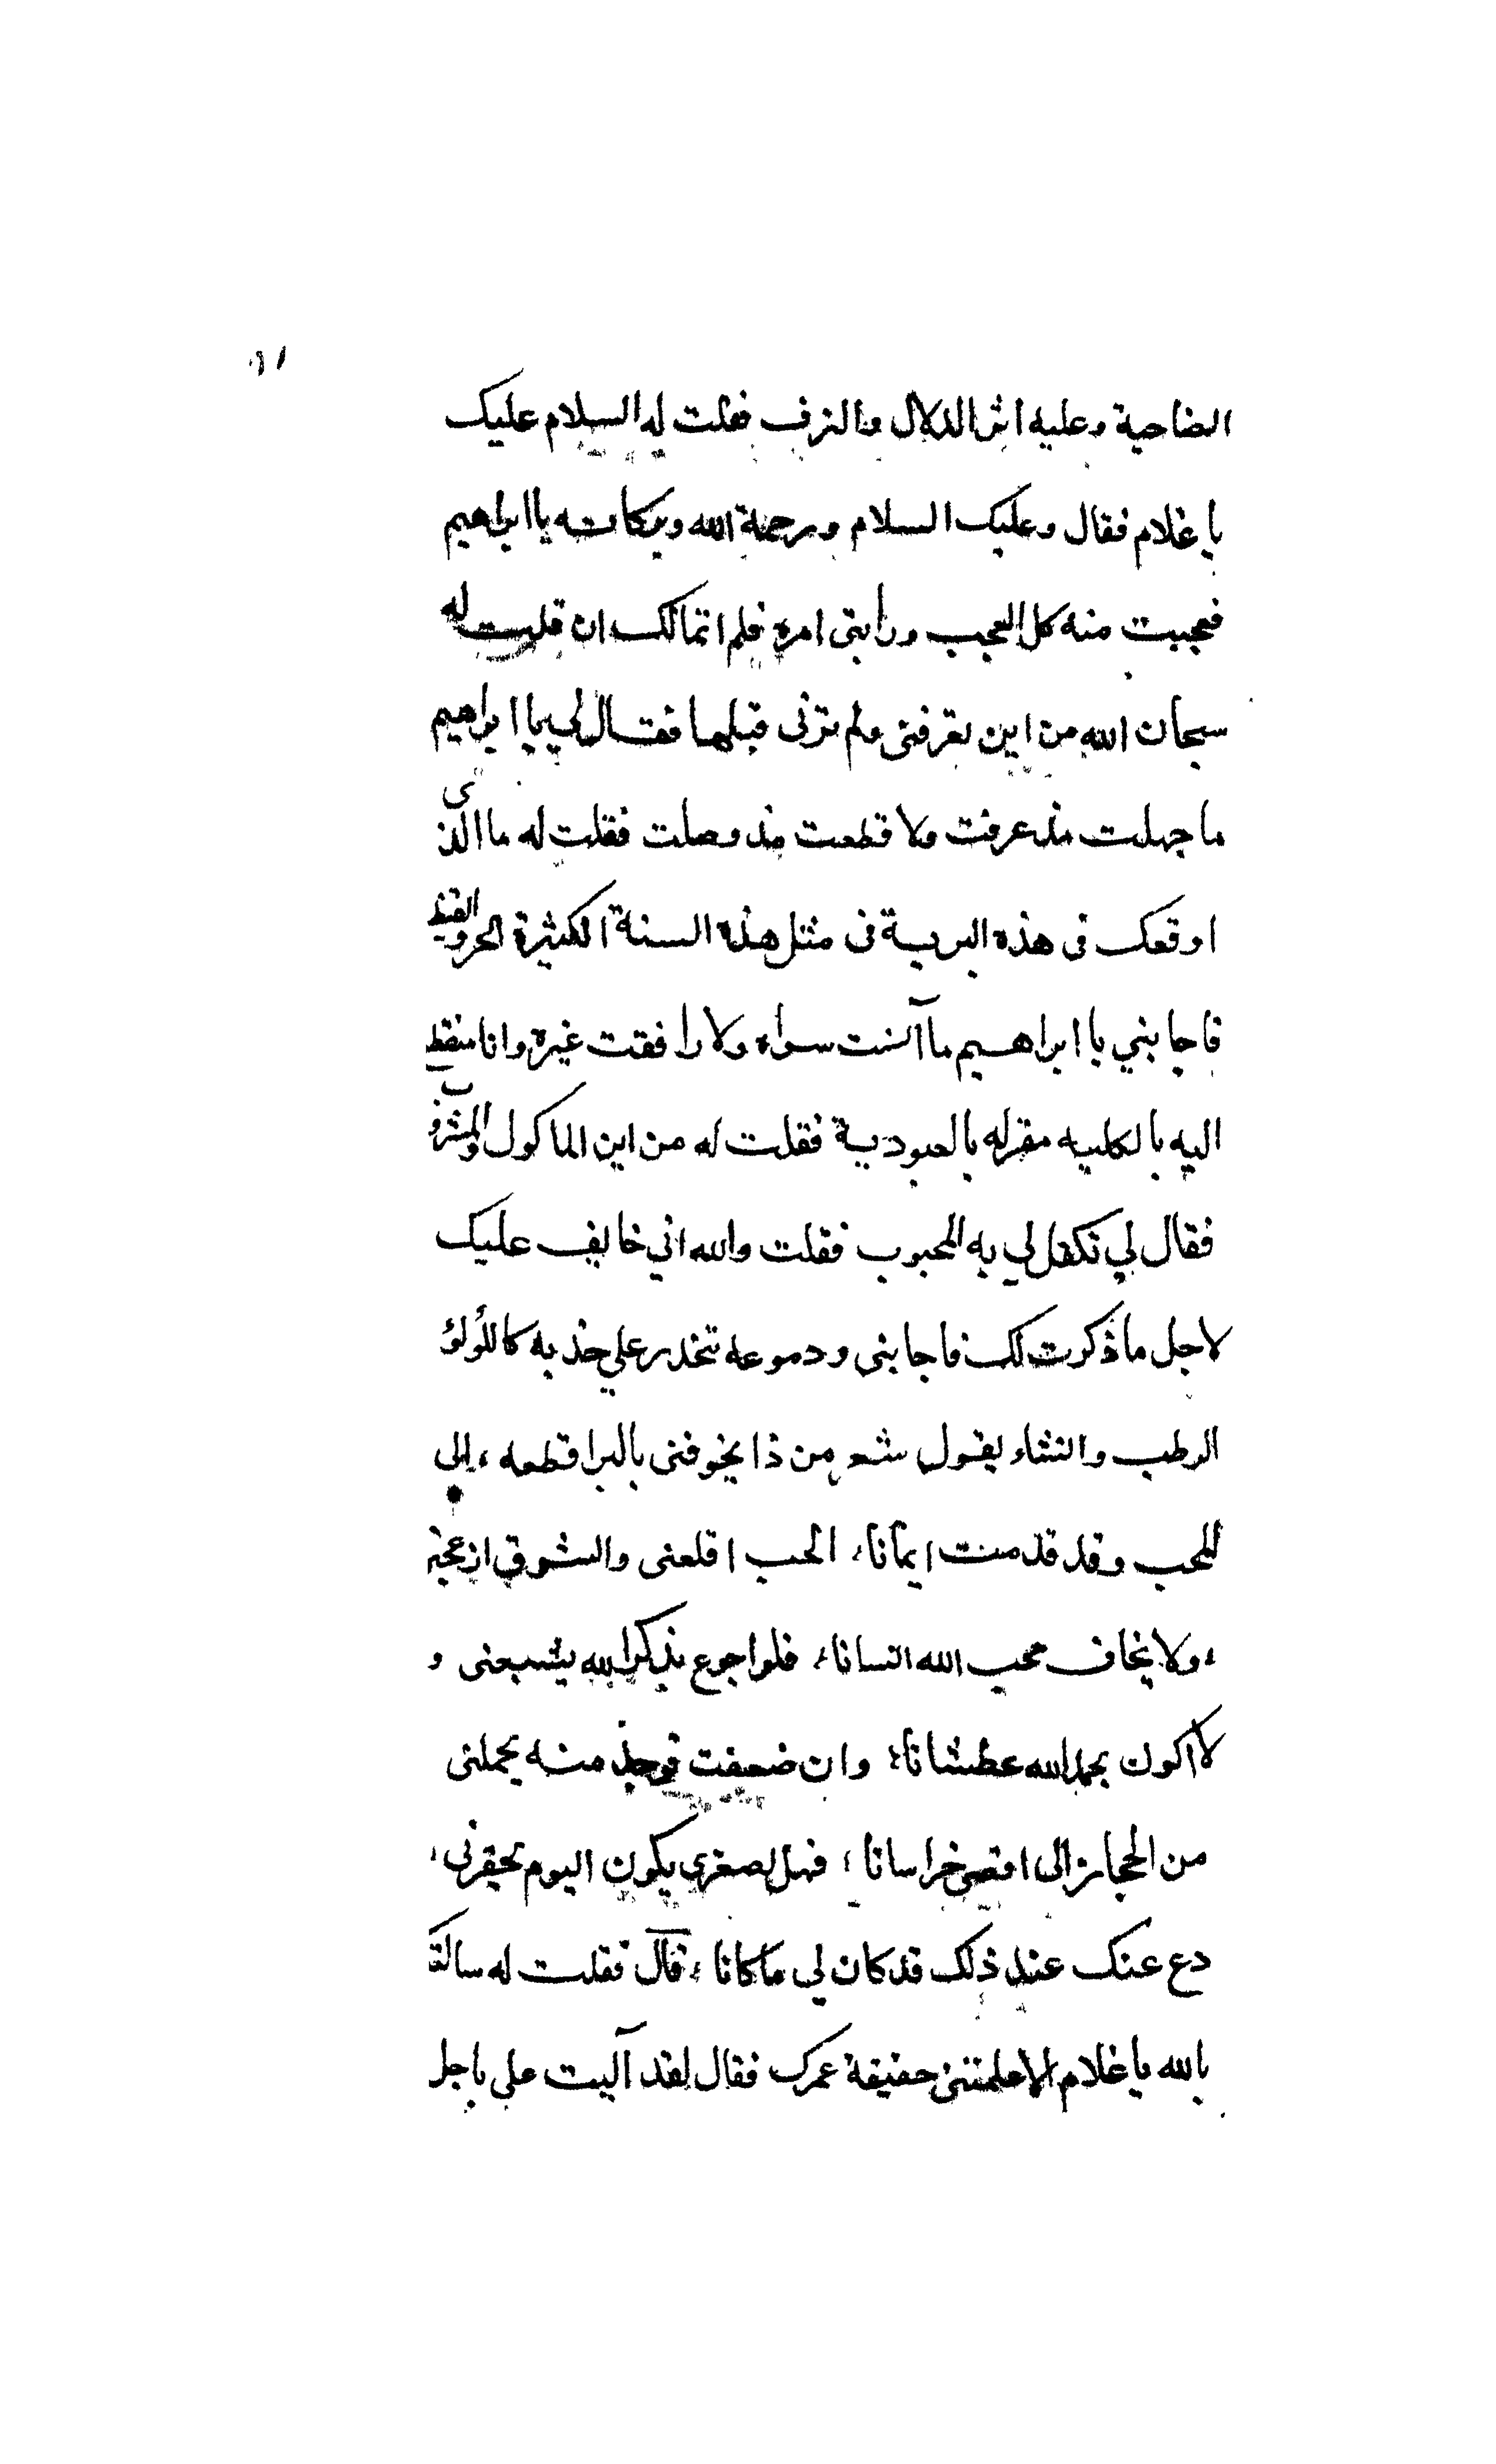 الضاحية وعليه اثر الدلال والترف فقلت له السلام عليك
يا غلام فقال وعليك السلام ورحمة الله وبركاته يا ابراهيم
فعجبت منه كل العجب ورابنى امره فلم اتمالك ان قلت له
سبحان الله من اين تعرفنى ولم ترنى قبلها فقال لي يا ابراهيم
ما جهلت مذ عرفت ولا قطعت مذ وصلت فقلت له ما الذى
اوقعك فى هذه البرية فى مثل هذه السنة الكثيرة الحر والقيظ
فاجابني يا ابراهيم ما آنست سواه ولا رافقت غيره وانا منقطع
اليه بالكليه مقر له بالعبودية فقلت له من اين الماكول والمشروب
فقال لي تكفل لي به المحبوب فقلت والله اني خايف عليك
لاجل ما ذكرت لك فاجابنى ودموعه تتحدر علي خديه كاللؤلؤ
الرطب وانشاء يقول شعر من ذا يخوفنى بالبر اقطعه ، الى
المحب وقد قدمت ايمانا ، الحب اقلعنى والشوق ازعجنى
، ولا يخاف محب الله انسانا ، فلو اجوع بذكر الله يشبعنى و
لا اكون بحمد الله عطشانا ، وان ضعفت فوجد منه يحملنى
من الحجاز الى اقصى خراسانا ، فهل لصغرى يكون اليوم تحقرنى ،
دع عنك عند ذلك قد كان لي ما كانا ، قال فقلت له سالتك
بالله يا غلام الا علمتنى حقيقة عمرك فقال لقد آليت على باجل